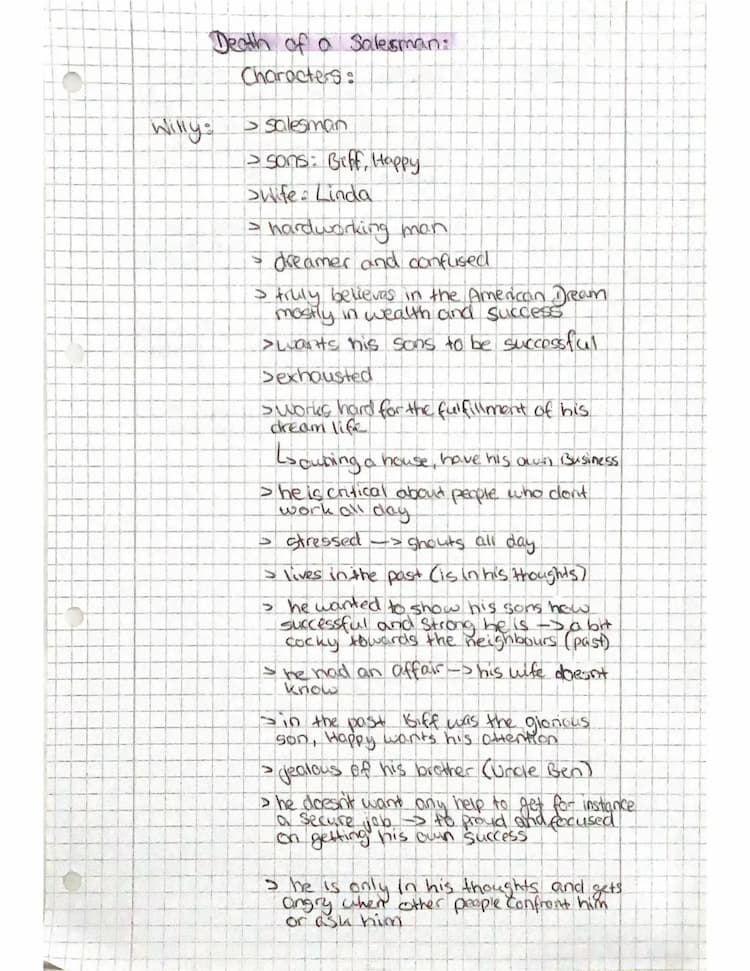 Death of a Salesman:
Characters:
Willy: > salesman
> sons: Biff, Happy
> Wife: Linda
> hardworking man
> dreamer and confused
> truly believes in the American Dream
mostly in wealth and success
> wants his sons to be successful
> exhausted
> works hard for the fulfillment of his
dream life
↳ owning a house, have his own Business
> he is critical about people who dont
work all day
> stressed --> shouts all day
> lives in the past (is in his thoughts)
> he wanted to show his sons how
successful and strong he is --> a bit
cocky towards the neighbours (past)
> he had an affair --> his wife doesnt
know
> in the past Biff was the glorious
son, Happy wants his attention
> jealous of his brother (Uncle Ben)
> he doesn't want any help to get for instance
a secure job --> to proud and focused
on getting his own success
> he is only in his thoughts and gets
angry when other people confront him
or ask him